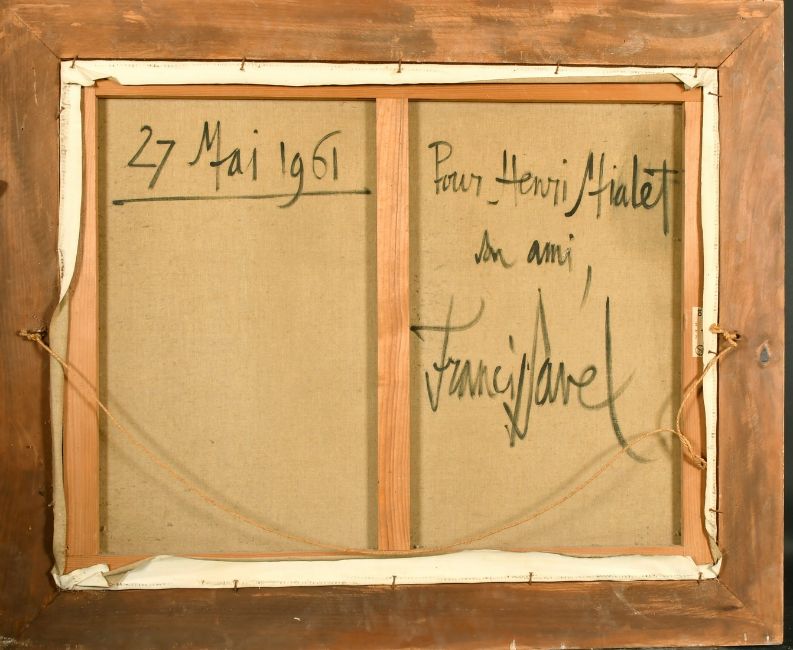 27 Mai 1961
Pour Henri Mialet
son ami,
Francis Savel